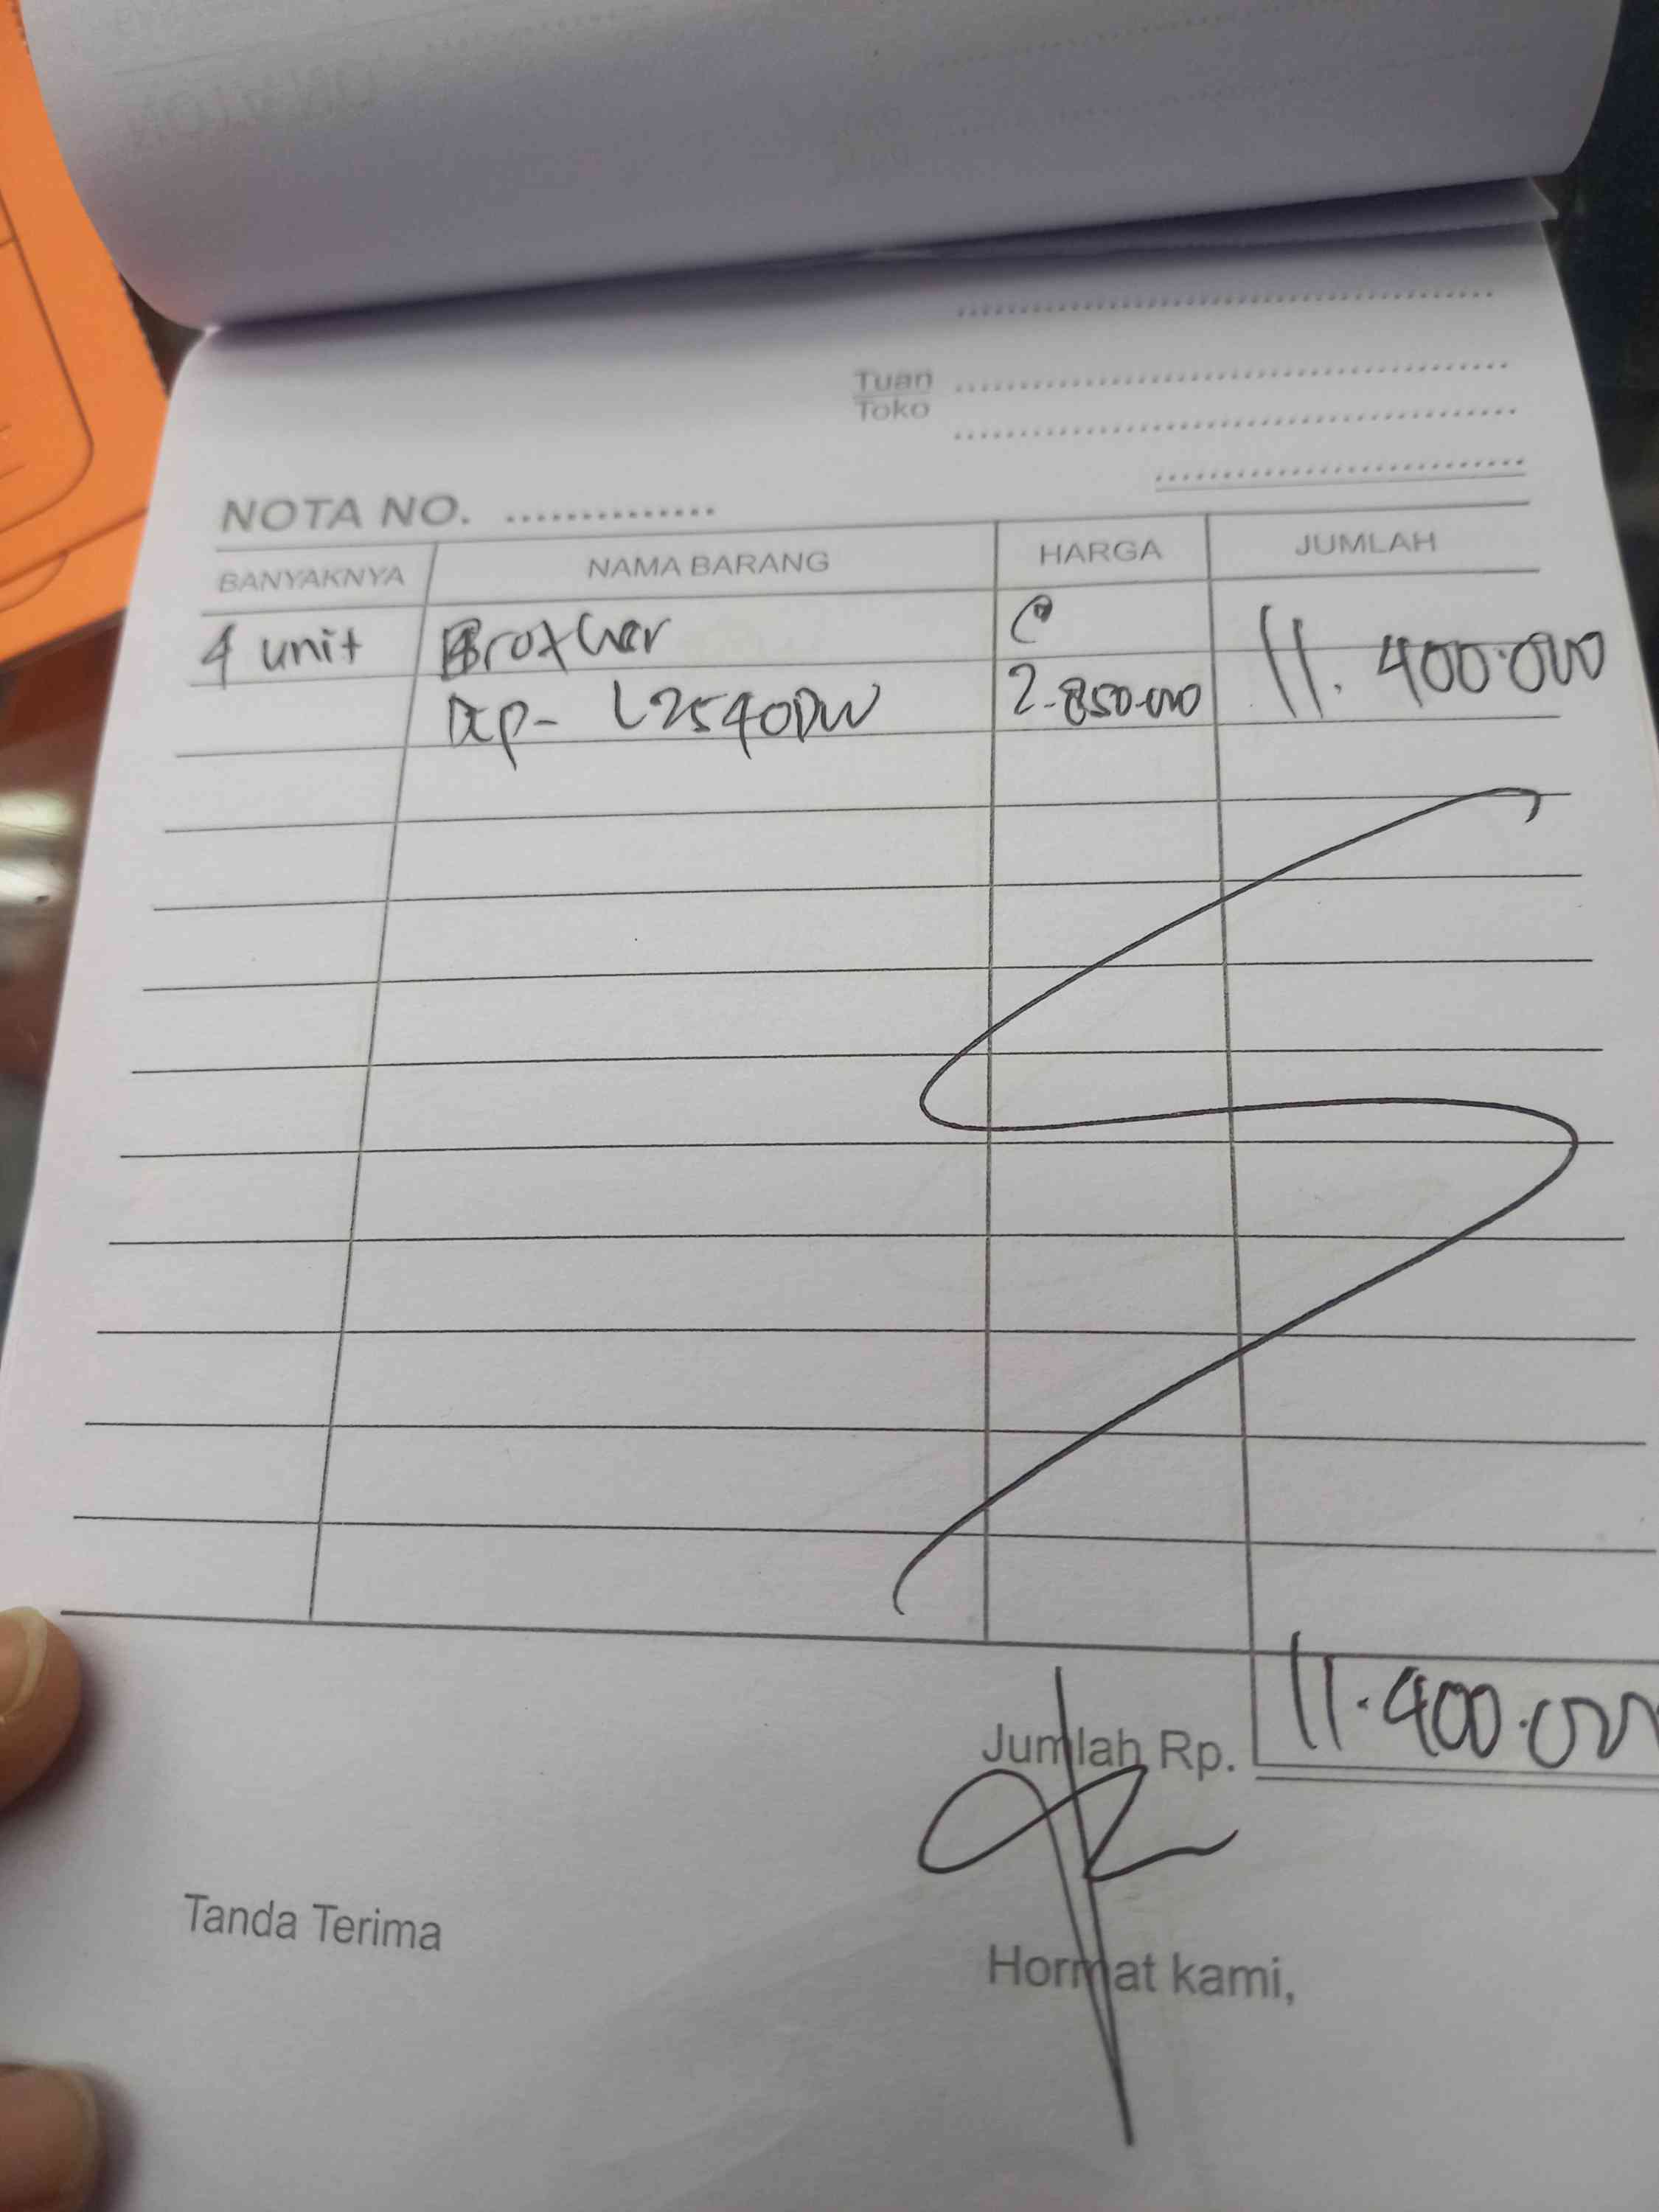 Tuan
Toko
NOTA NO. ..............
BANYAKNYA NAMA BARANG HARGA JUMLAH
4 unit Brother @ 11.400.000
DCP- L2540DW 2.850.000
Jumlah Rp. 11.400.000
Tanda Terima
Hormat kami,